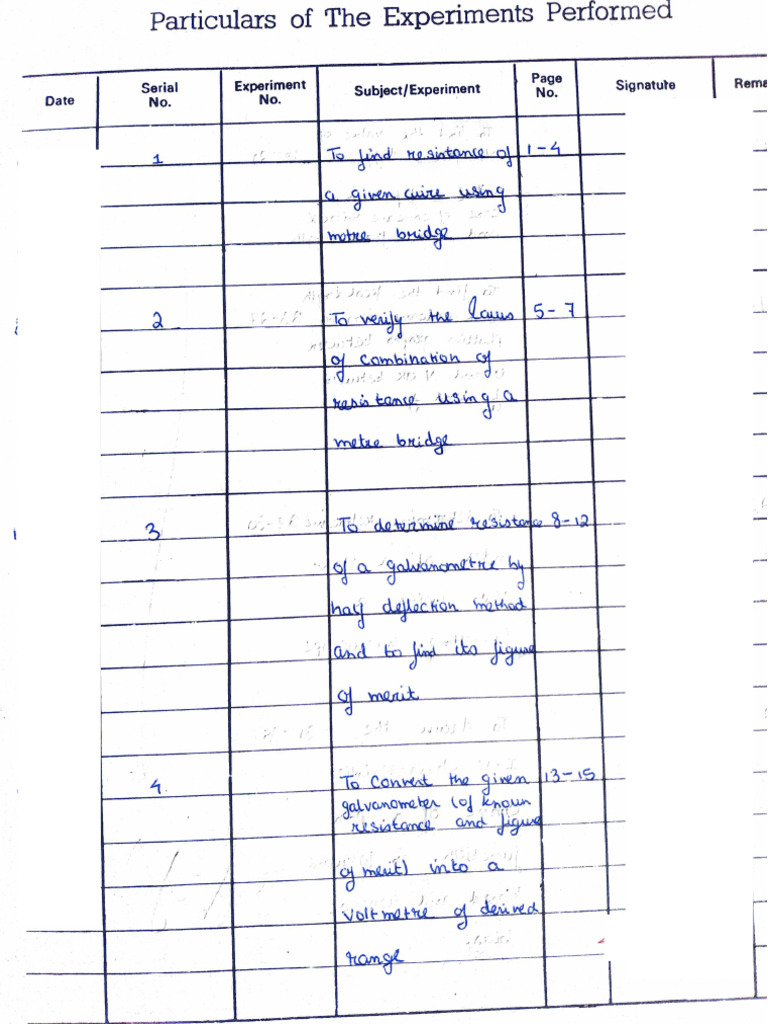 Particulars of The Experiments Performed
Date Serial No. Experiment No. Subject/Experiment Page No. Signature Rema
1 To find resistance of 1-4
a given wire using
metre bridge
2 To verify the laws 5-7
of combination of
resistance using a
metre bridge
3 To determine resistance 8-12
of a galvanometre by
half deflection method
and to find its figure
of merit
4. To Convert the given 13-15
galvanometer (of known
resistance and figure
of merit) into a
voltmetre of desired
range